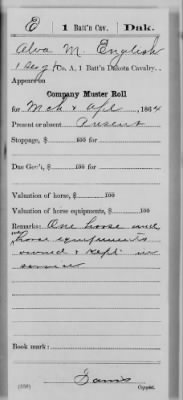 E 1 Batt'n Cav. Dak.
Alva M. English
Co. A, 1 Batt'n Dakota Cavalry.
Appears on
Company Muster Roll
for Mch & Apl, 1864
Present or absent Present
Stoppage, $ 100 for
Due Gov't, $ 100 for
Valuation of horse, $ 100
Valuation of horse equipments, $ 100
Remarks: One horse and
horse equipments
owned & kept in
service
Book mark:
(358) Copyist.